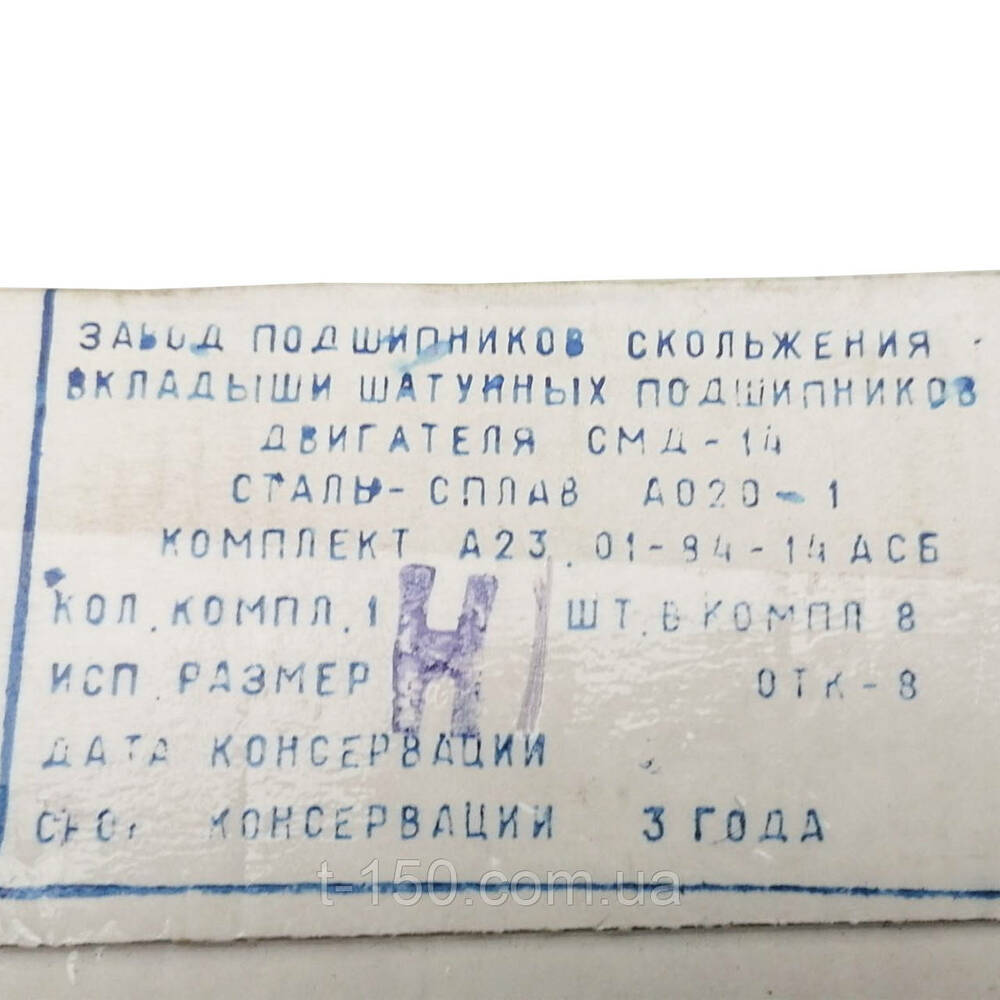 ЗАВОД ПОДШИПНИКОВ СКОЛЬЖЕНИЯ
ВКЛАДЫШИ ШАТУННЫХ ПОДШИПНИКОВ
ДВИГАТЕЛЯ СМД-14
СТАЛЬ-СПЛАВ АО20-1
КОМПЛЕКТ А23.01-94-14АСБ
КОЛ.КОМПЛ.1 ШТ.В КОМПЛ 8
ИСП.РАЗМЕР Н1 ОТК-8
ДАТА КОНСЕРВАЦИИ
СРОК КОНСЕРВАЦИИ 3 ГОДА
t-150.com.ua